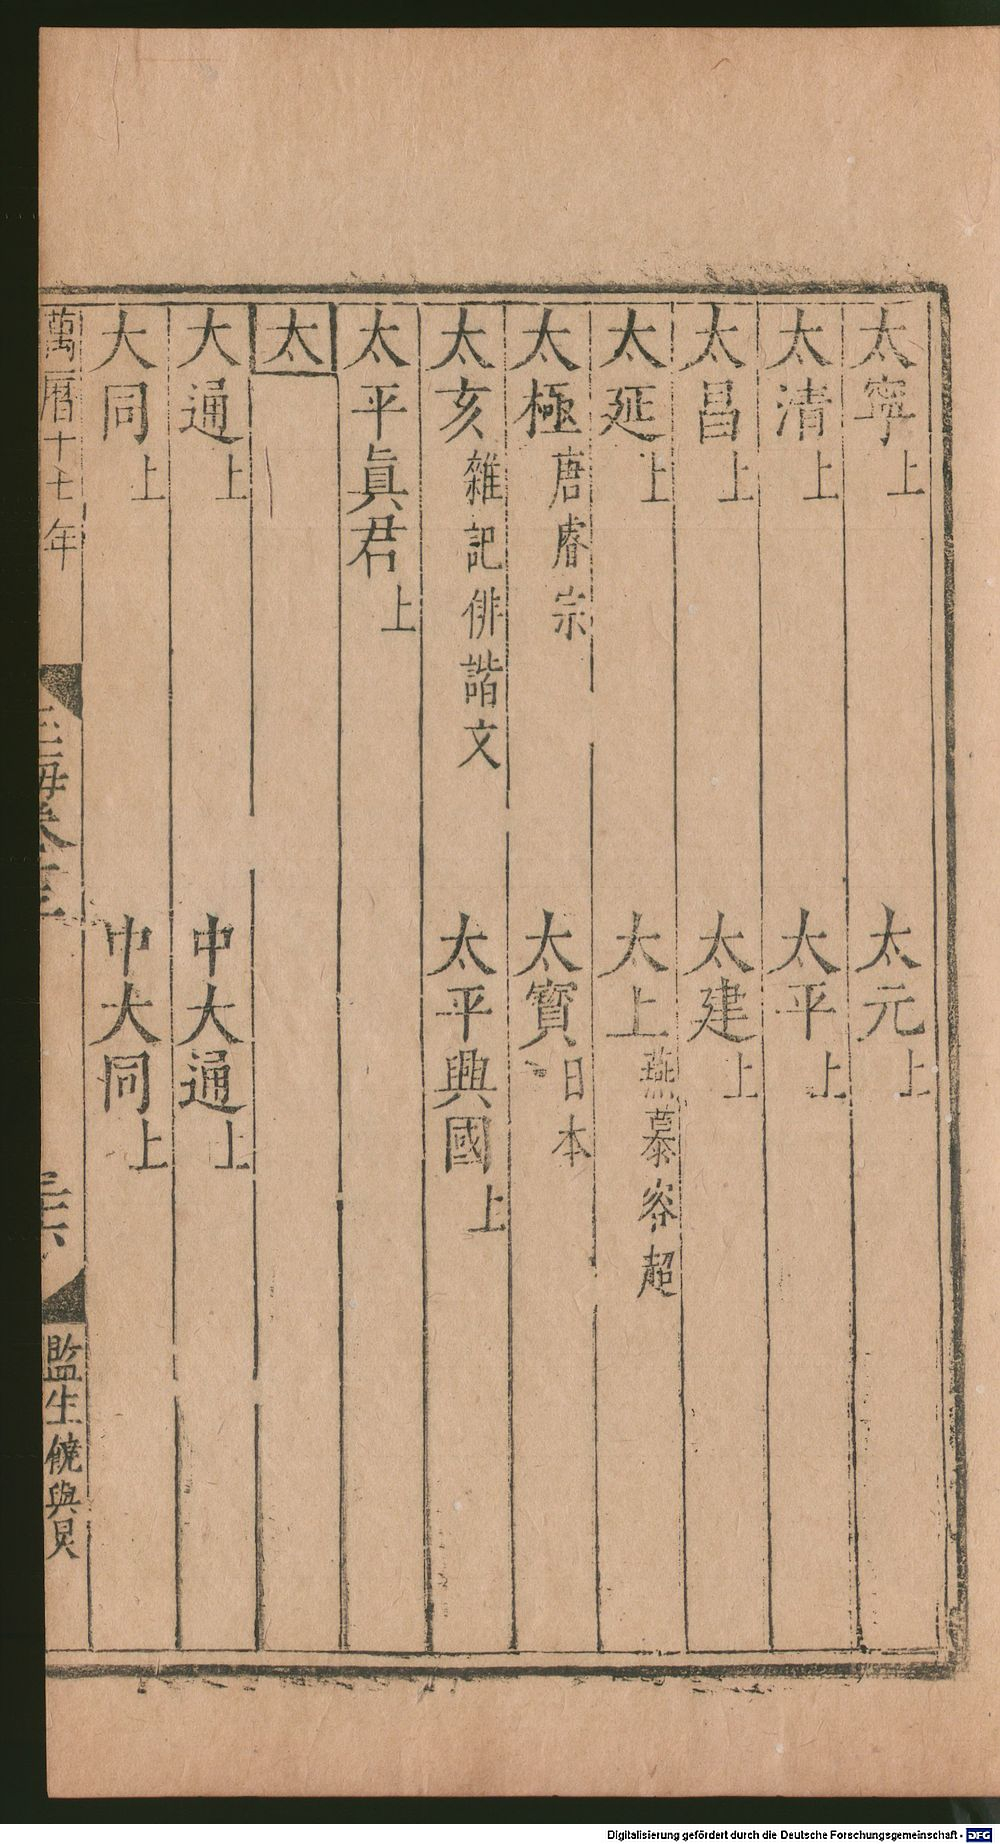 太寧上　太元上
太清上　太平上
太昌上　太建上
太延上　太上燕慕容超
太極唐睿宗　太寳日本
太亥雜記俳諧文　太平興國上
太平眞君上
太
大通上　中大通上
大同上　中大同上
萬曆十七年
玉海卷十三
三六
監生饒與
Digitalisierung gefördert durch die Deutsche Forschungsgemeinschaft - DFG